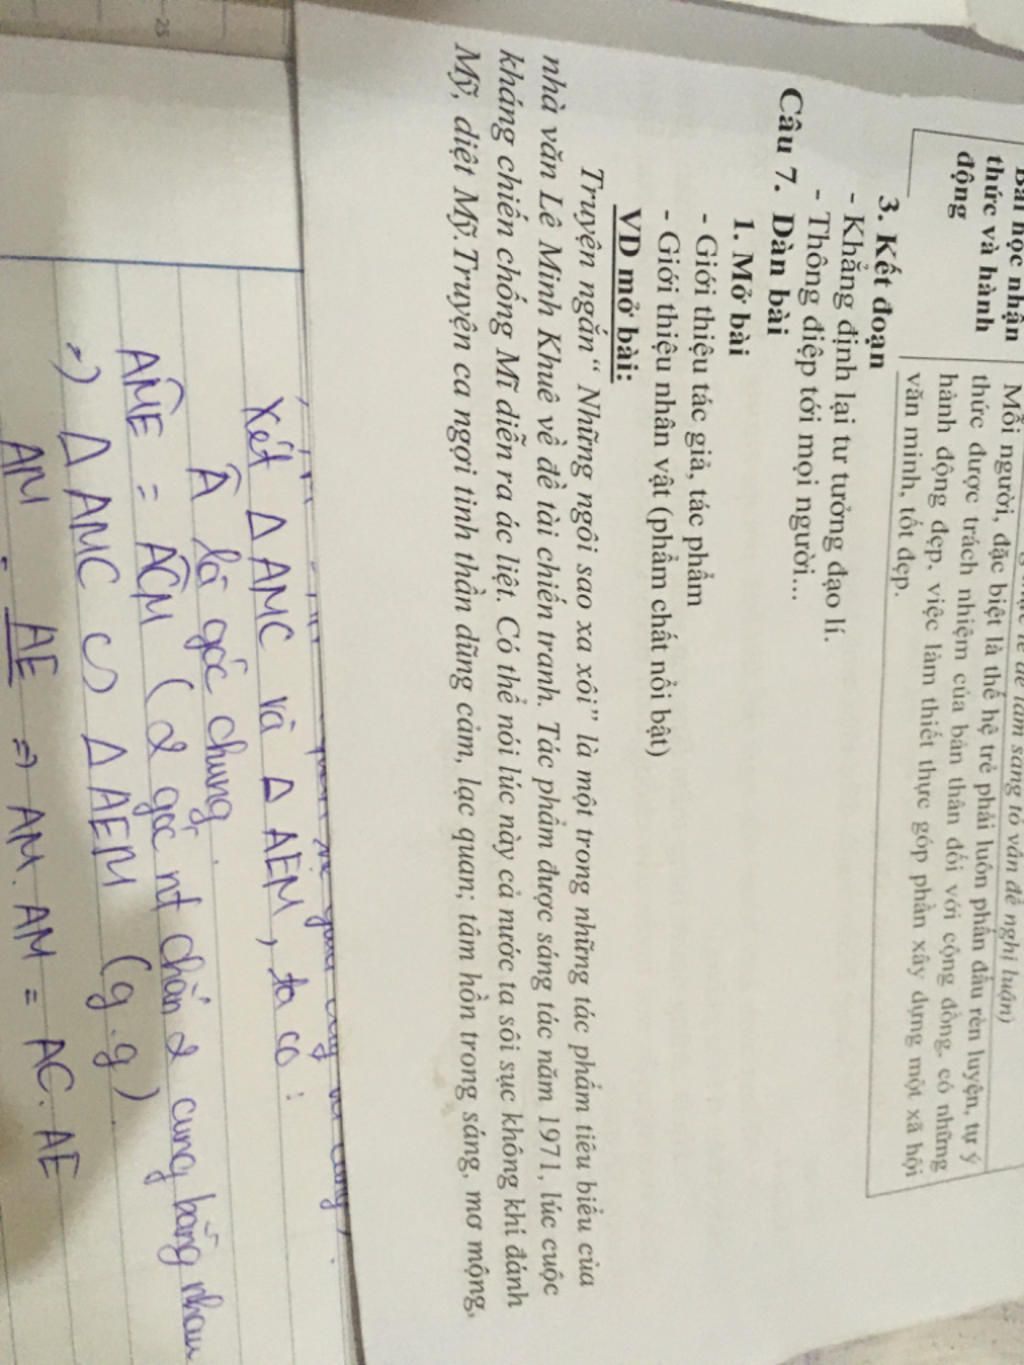 Bài học nhận
thức và hành
động
để làm sáng tỏ vấn đề nghị luận)
Mỗi người, đặc biệt là thế hệ trẻ phải luôn phấn đấu rèn luyện, tự ý
thức được trách nhiệm của bản thân đối với cộng đồng, có những
hành động đẹp, việc làm thiết thực góp phần xây dựng một xã hội
văn minh, tốt đẹp.
3. Kết đoạn
- Khẳng định lại tư tưởng đạo lí.
- Thông điệp tới mọi người...
Câu 7. Dàn bài
1. Mở bài
- Giới thiệu tác giả, tác phẩm
- Giới thiệu nhân vật (phẩm chất nổi bật)
VD mở bài:
Truyện ngắn “ Những ngôi sao xa xôi” là một trong những tác phẩm tiêu biểu của
nhà văn Lê Minh Khuê về đề tài chiến tranh. Tác phẩm được sáng tác năm 1971, lúc cuộc
kháng chiến chống Mĩ diễn ra ác liệt. Có thể nói lúc này cả nước ta sôi sục không khí đánh
Mỹ, diệt Mỹ.Truyện ca ngợi tinh thần dũng cảm, lạc quan; tâm hồn trong sáng, mơ mộng,
Xét Δ AMC và Δ AEM, ta có:
Â là góc chung.
AME = ACM (2 góc nt chắn 2 cung bằng nhau
=) Δ AMC ᔕ Δ AEM (g.g)
AM = AE => AM. AM = AC. AE